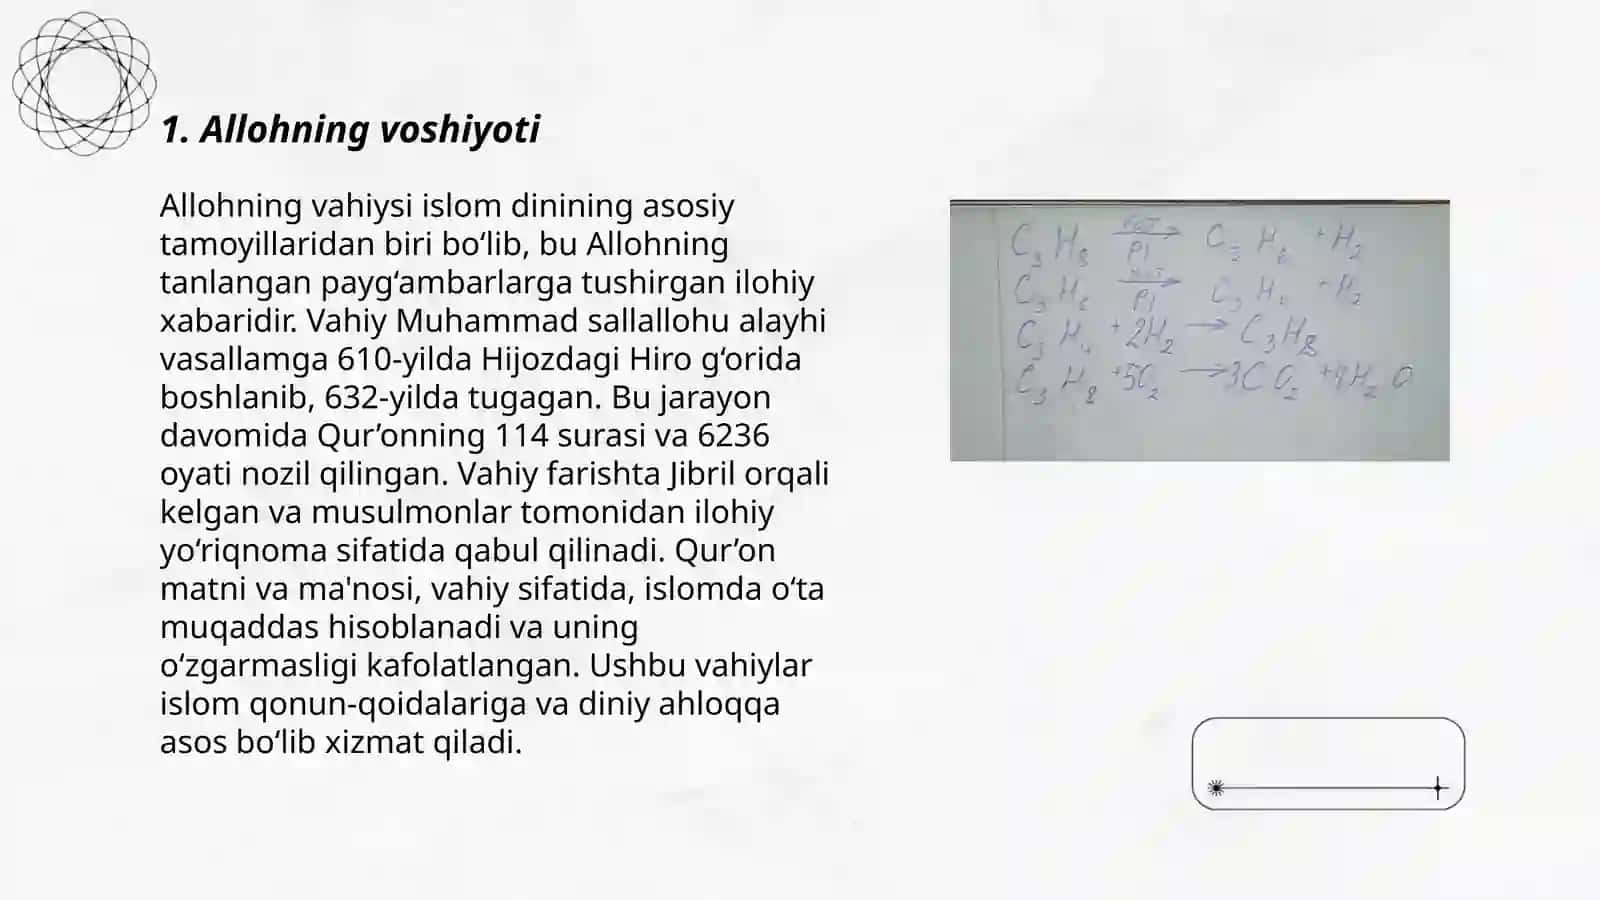 1. Allohning voshiyoti
Allohning vahiysi islom dinining asosiy
tamoyillaridan biri bo‘lib, bu Allohning
tanlangan payg‘ambarlarga tushirgan ilohiy
xabaridir. Vahiy Muhammad sallallohu alayhi
vasallamga 610-yilda Hijozdagi Hiro g‘orida
boshlanib, 632-yilda tugagan. Bu jarayon
davomida Qur’onning 114 surasi va 6236
oyati nozil qilingan. Vahiy farishta Jibril orqali
kelgan va musulmonlar tomonidan ilohiy
yo‘riqnoma sifatida qabul qilinadi. Qur’on
matni va ma'nosi, vahiy sifatida, islomda o‘ta
muqaddas hisoblanadi va uning
o‘zgarmasligi kafolatlangan. Ushbu vahiylar
islom qonun-qoidalariga va diniy ahloqqa
asos bo‘lib xizmat qiladi.
C₃H₈ → Pt C₃H₆ + H₂
C₃H₆ → Pt C₃H₄ + H₂
C₃H₄ + 2H₂ → C₃H₈
C₃H₈ + 5O₂ → 3CO₂ + 4H₂O